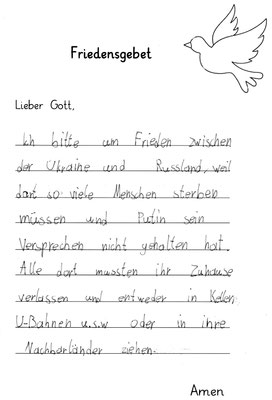 Friedensgebet
Lieber Gott,
Ich bitte um Frieden zwischen
der Ukraine und Russland, weil
dort so viele Menschen sterben
müssen und Putin sein
Versprechen nicht gehalten hat.
Alle dort mussten ihr Zuhause
verlassen und entweder in Keller,
U-Bahnen u.s.w oder in ihre
Nachbarländer ziehen.
Amen